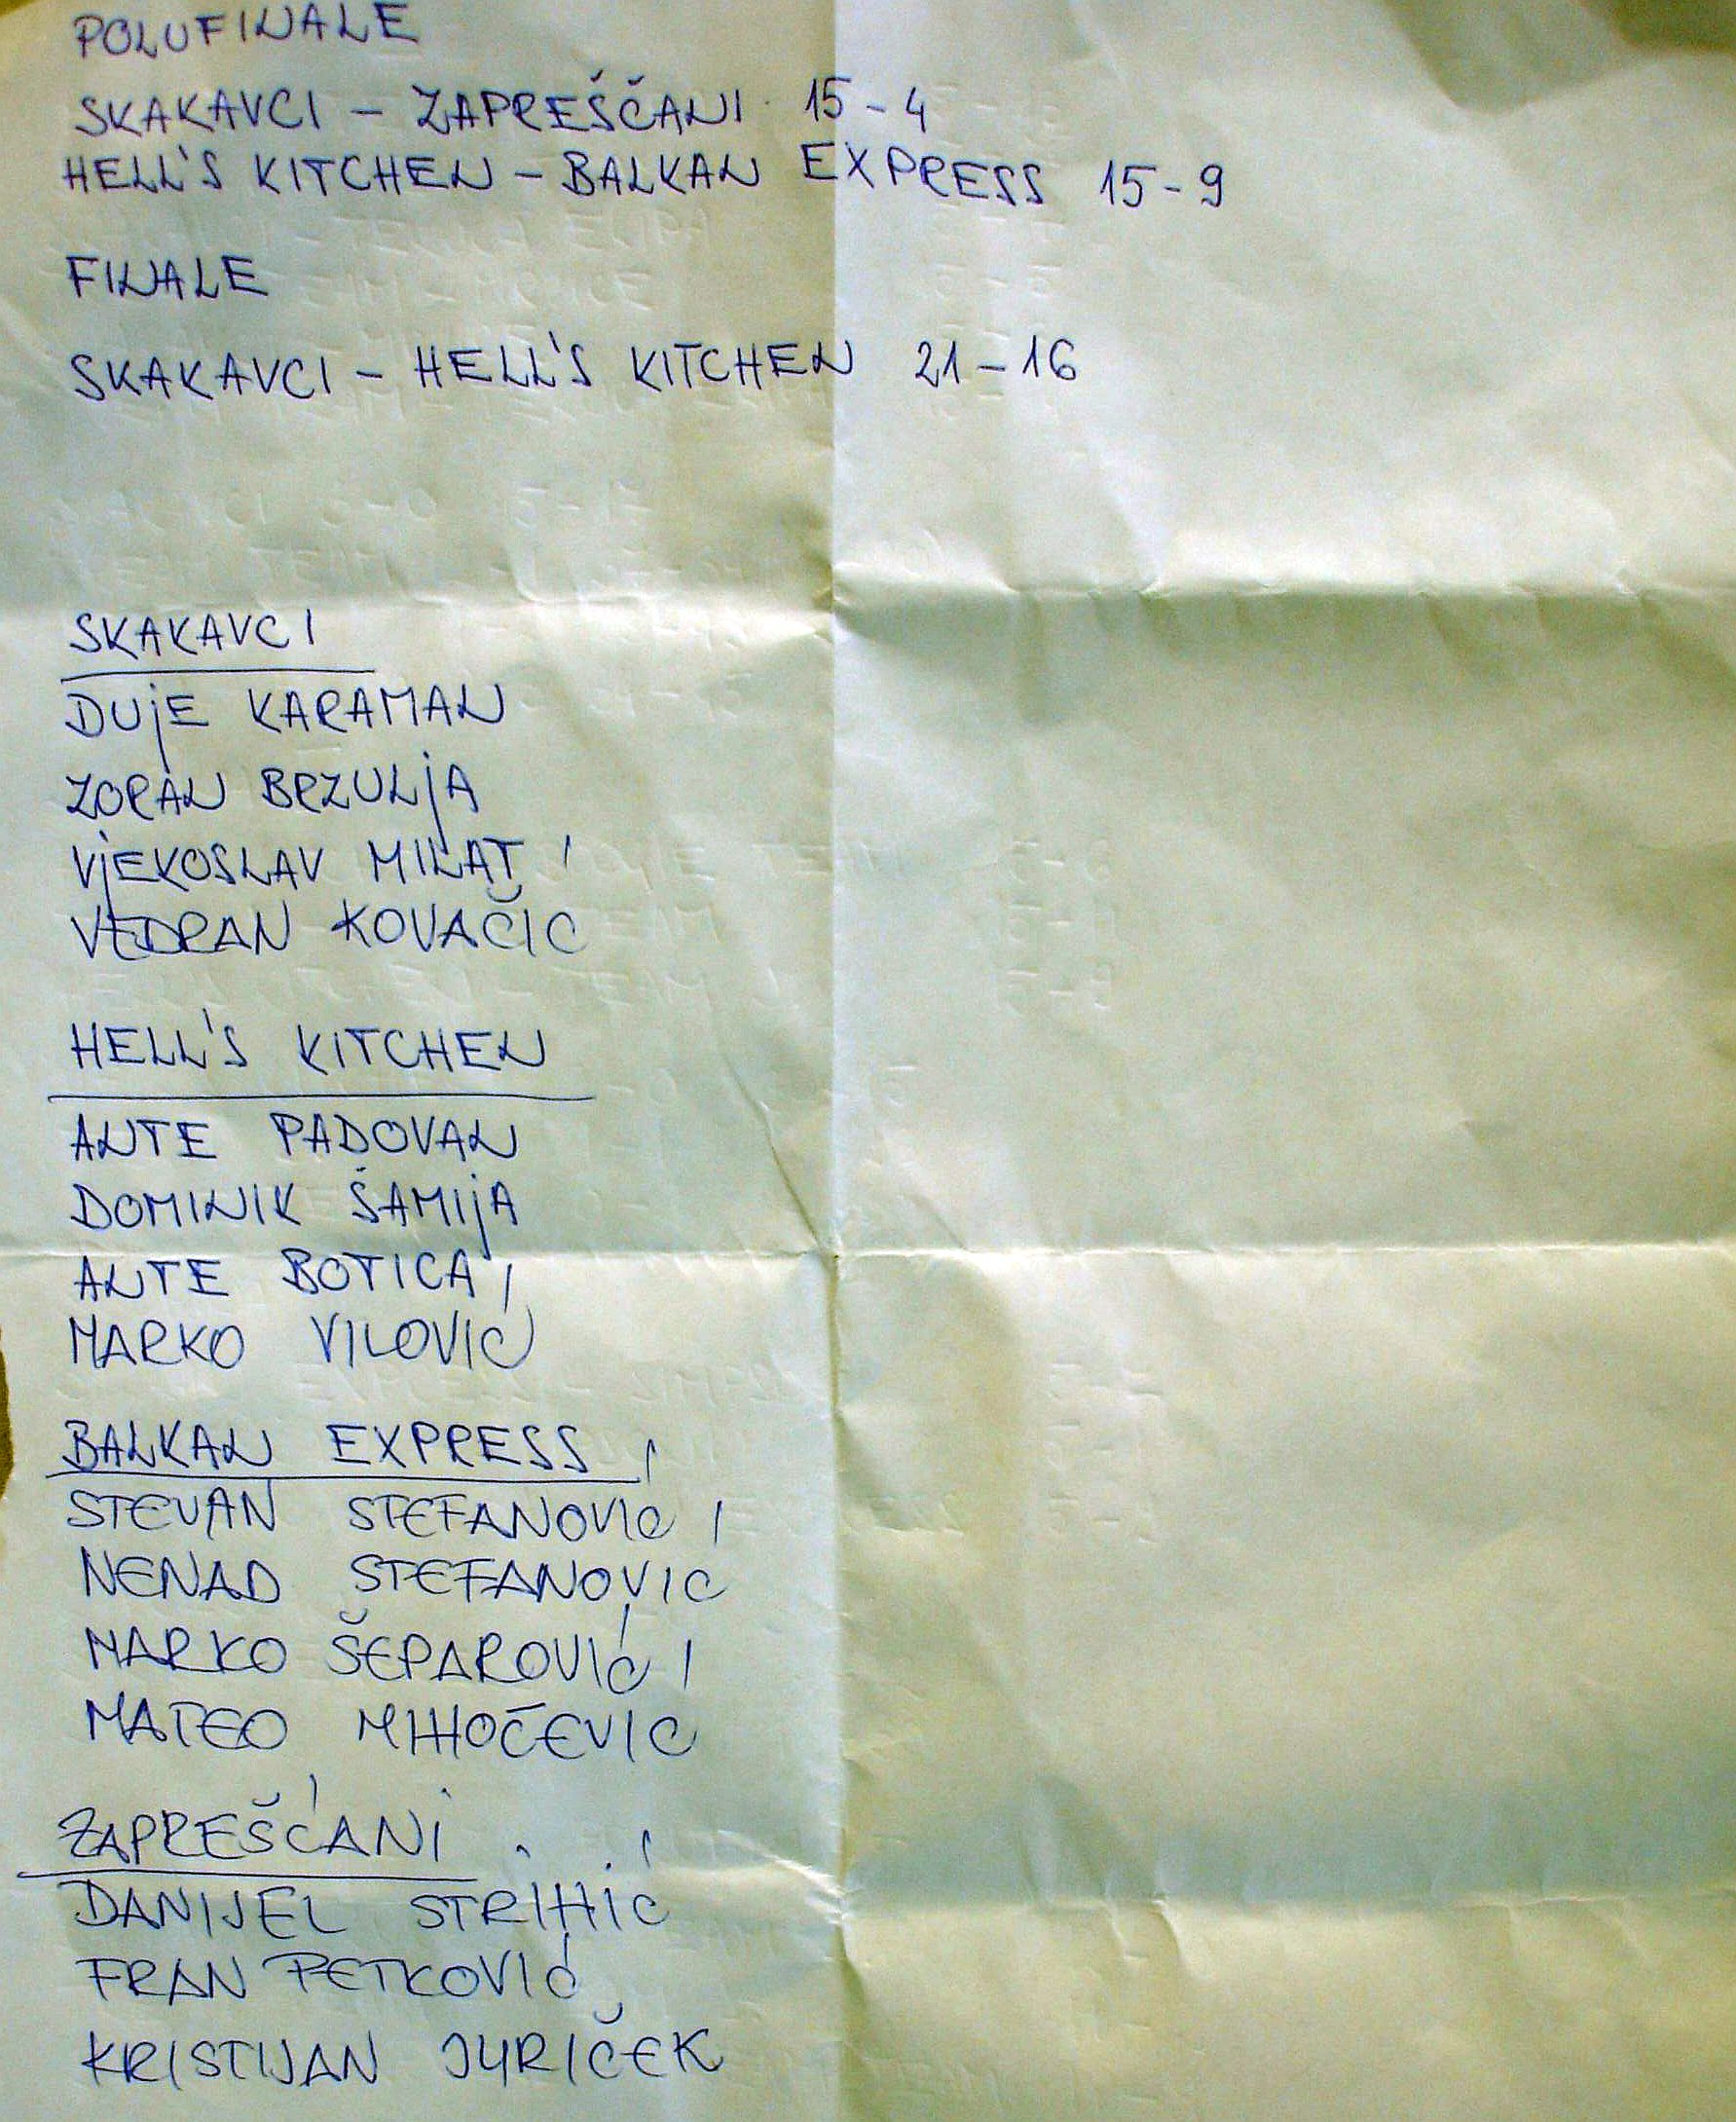 POLUFINALE
SKAKAVCI - ZAPREŠČANI 15-4
HELL'S KITCHEN - BALKAN EXPRESS 15-9
FINALE
SKAKAVCI - HELL'S KITCHEN 21-16
SKAKAVCI
DUjE KARAMAN
ZORAN BRZULjA
VjEKOSLAV MILAT
VEDRAN KOVAČIĆ
HELL'S KITCHEN
ANTE PADOVAN
DOMINIK ŠAMIjA
ANTE BOTICA
MARKO VILOVIĆ
BALKAN EXPRESS
STEVAN STEFANOVIĆ
NENAD STEFANOVIĆ
MARKO ŠEPAROVIĆ
MATEO MIHOČEVIĆ
ZAPREŠĆANI
DANIJEL STRIHIĆ
FRAN PETKOVIĆ
KRISTIJAN JURIČEK